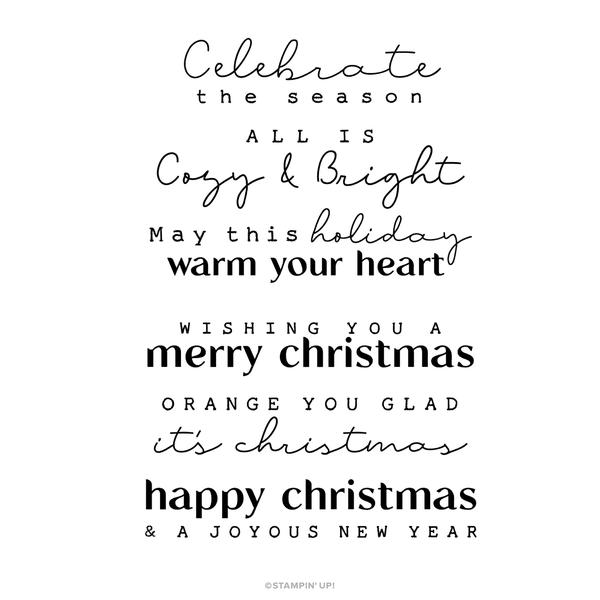 Celebrate
the season
ALL IS
Cozy & Bright
May this holiday
warm your heart
WISHING YOU A
merry christmas
ORANGE YOU GLAD
it's christmas
happy christmas
& A JOYOUS NEW YEAR
©STAMPIN' UP!